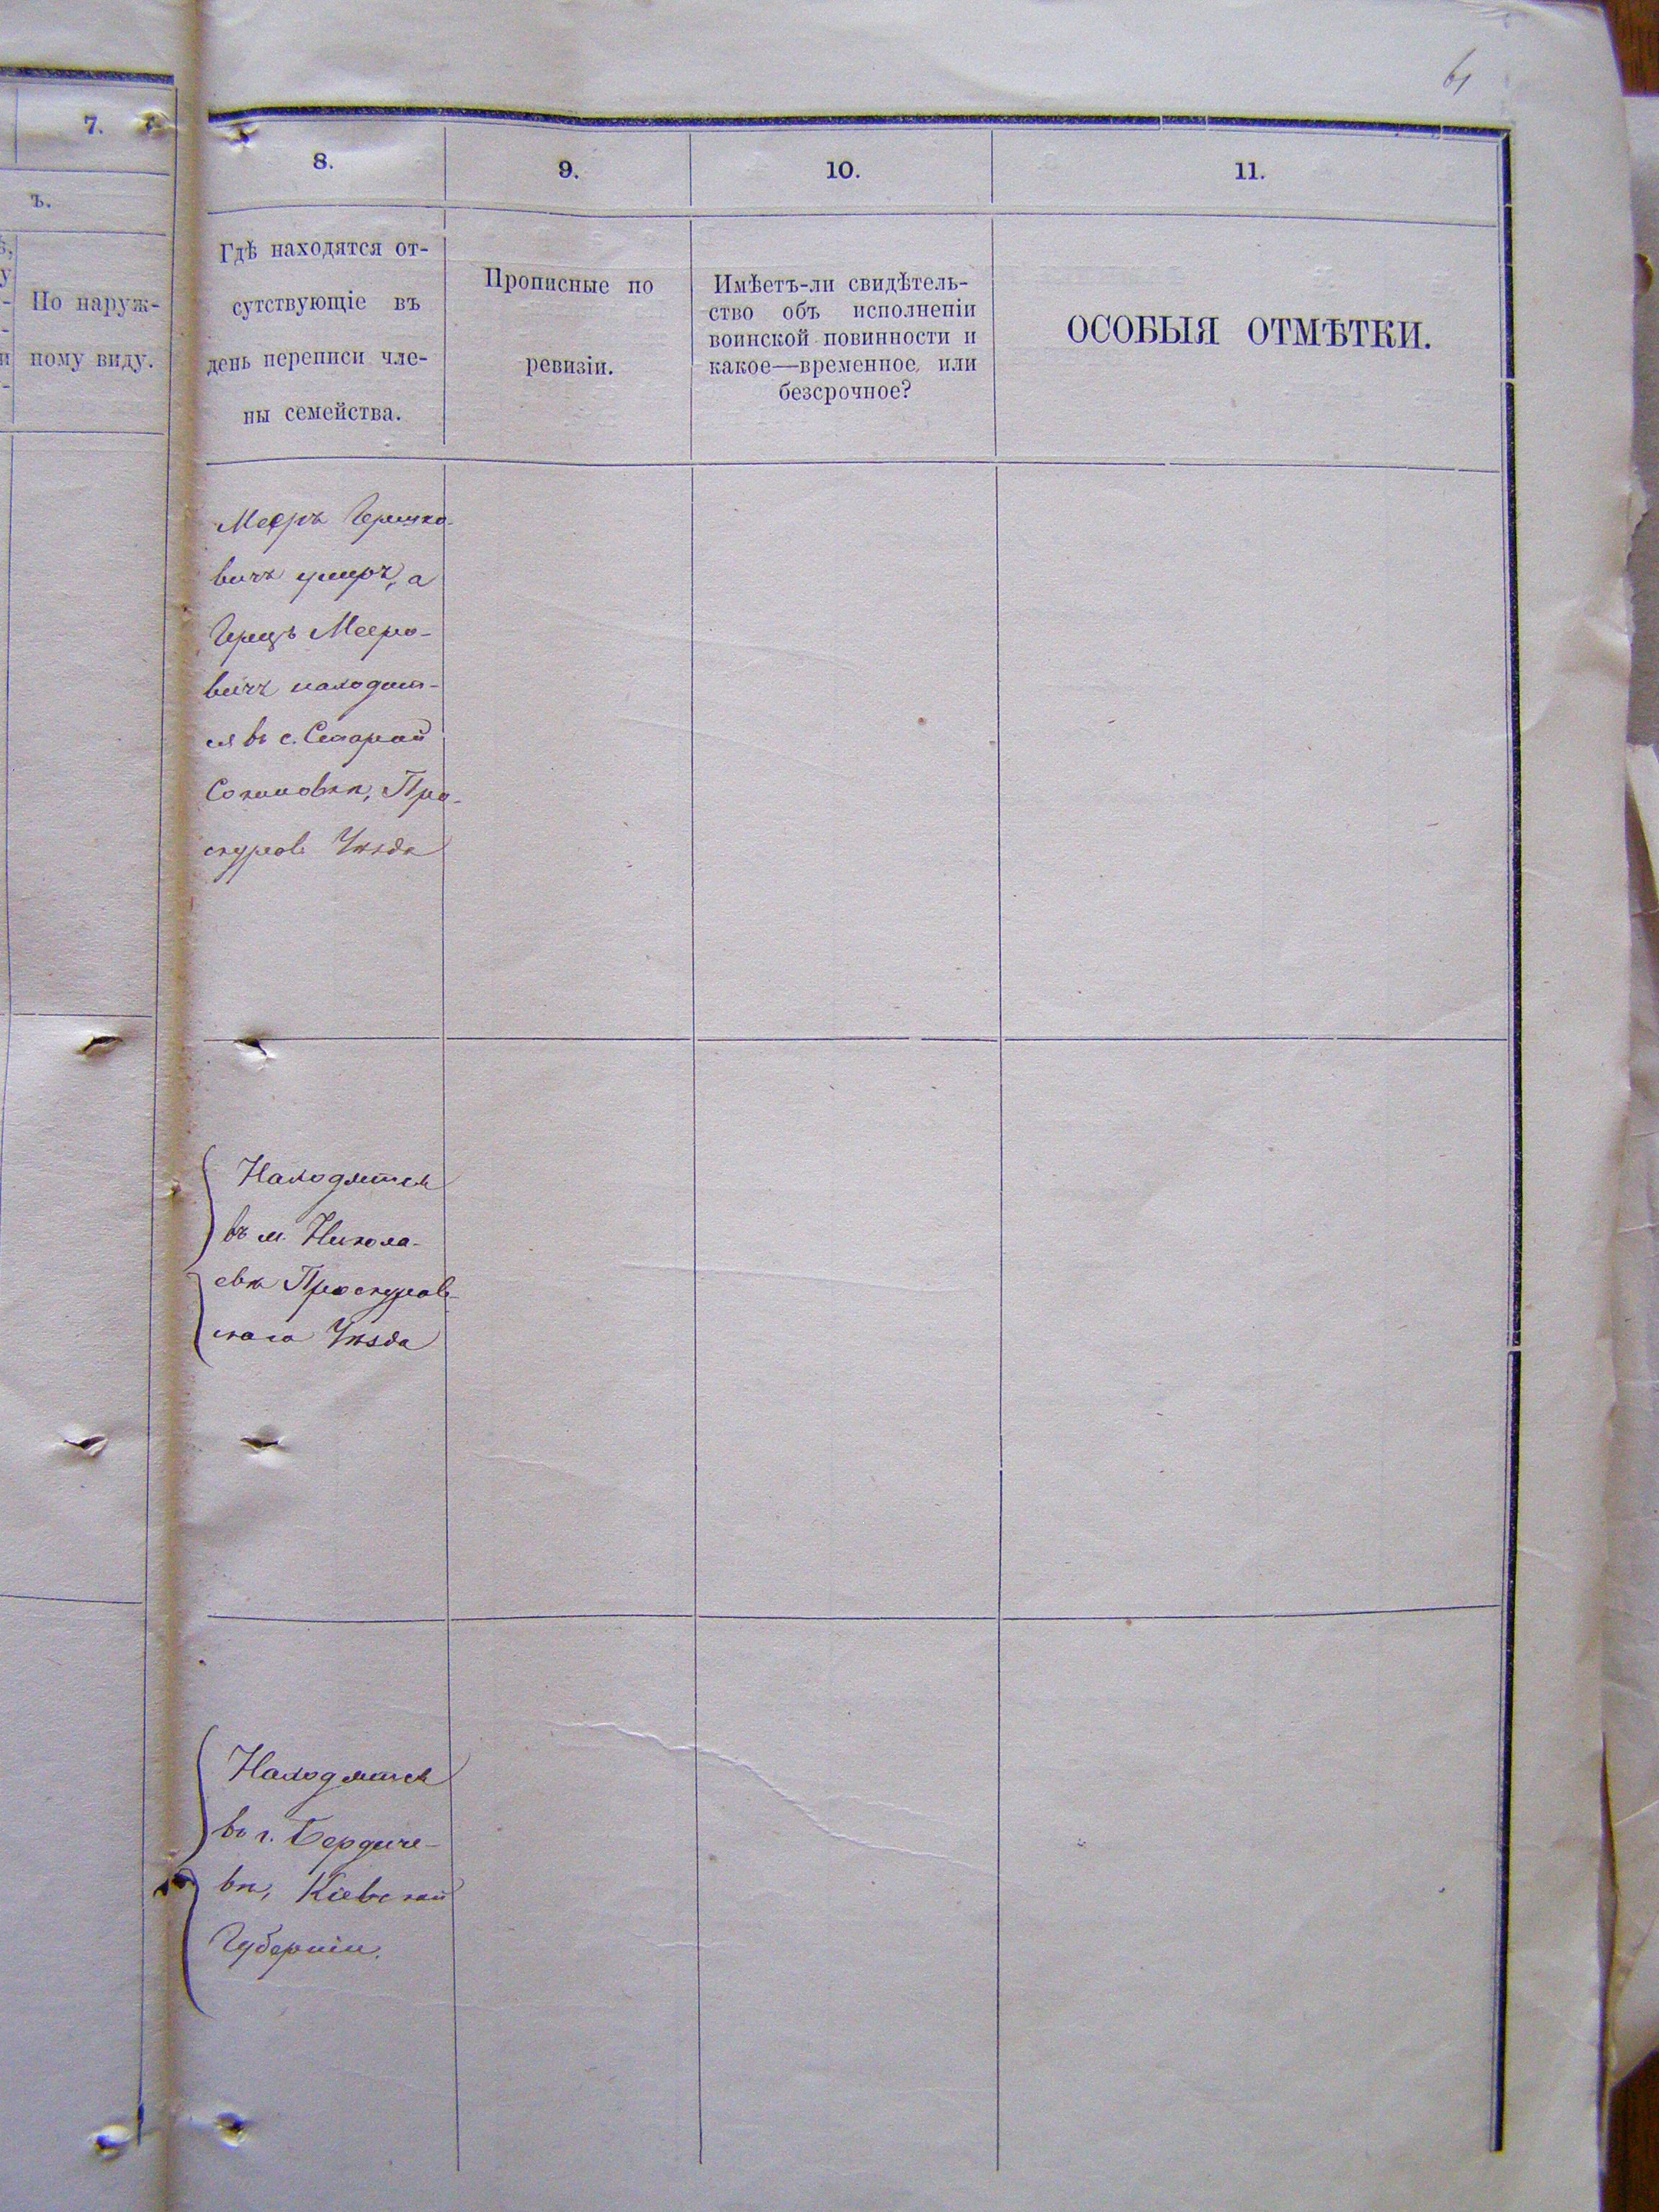 61
7.
ъ.
По наруж-
ному виду.
8.
9.
10.
11.
Гдѣ находятся от-
сутствующіе въ
день переписи чле-
ны семейства.
Прописные по
ревизіи.
Имѣетъ-ли свидѣтель-
ство объ исполненіи
воинской повинности и
какое—временное, или
безсрочное?
ОСОБЫЯ ОТМѢТКИ.
Мееръ Гершко-
вичъ умеръ, а
Герщъ Мееро-
вичъ находит-
ся въ с. Старой
Синявкѣ, Про-
скуров. Уѣзда
Находятся
въ м. Никола-
евкѣ Проскуров-
скаго Уѣзда
Находятся
въ г. Бердиче-
вѣ, Кіевской
Губерніи.